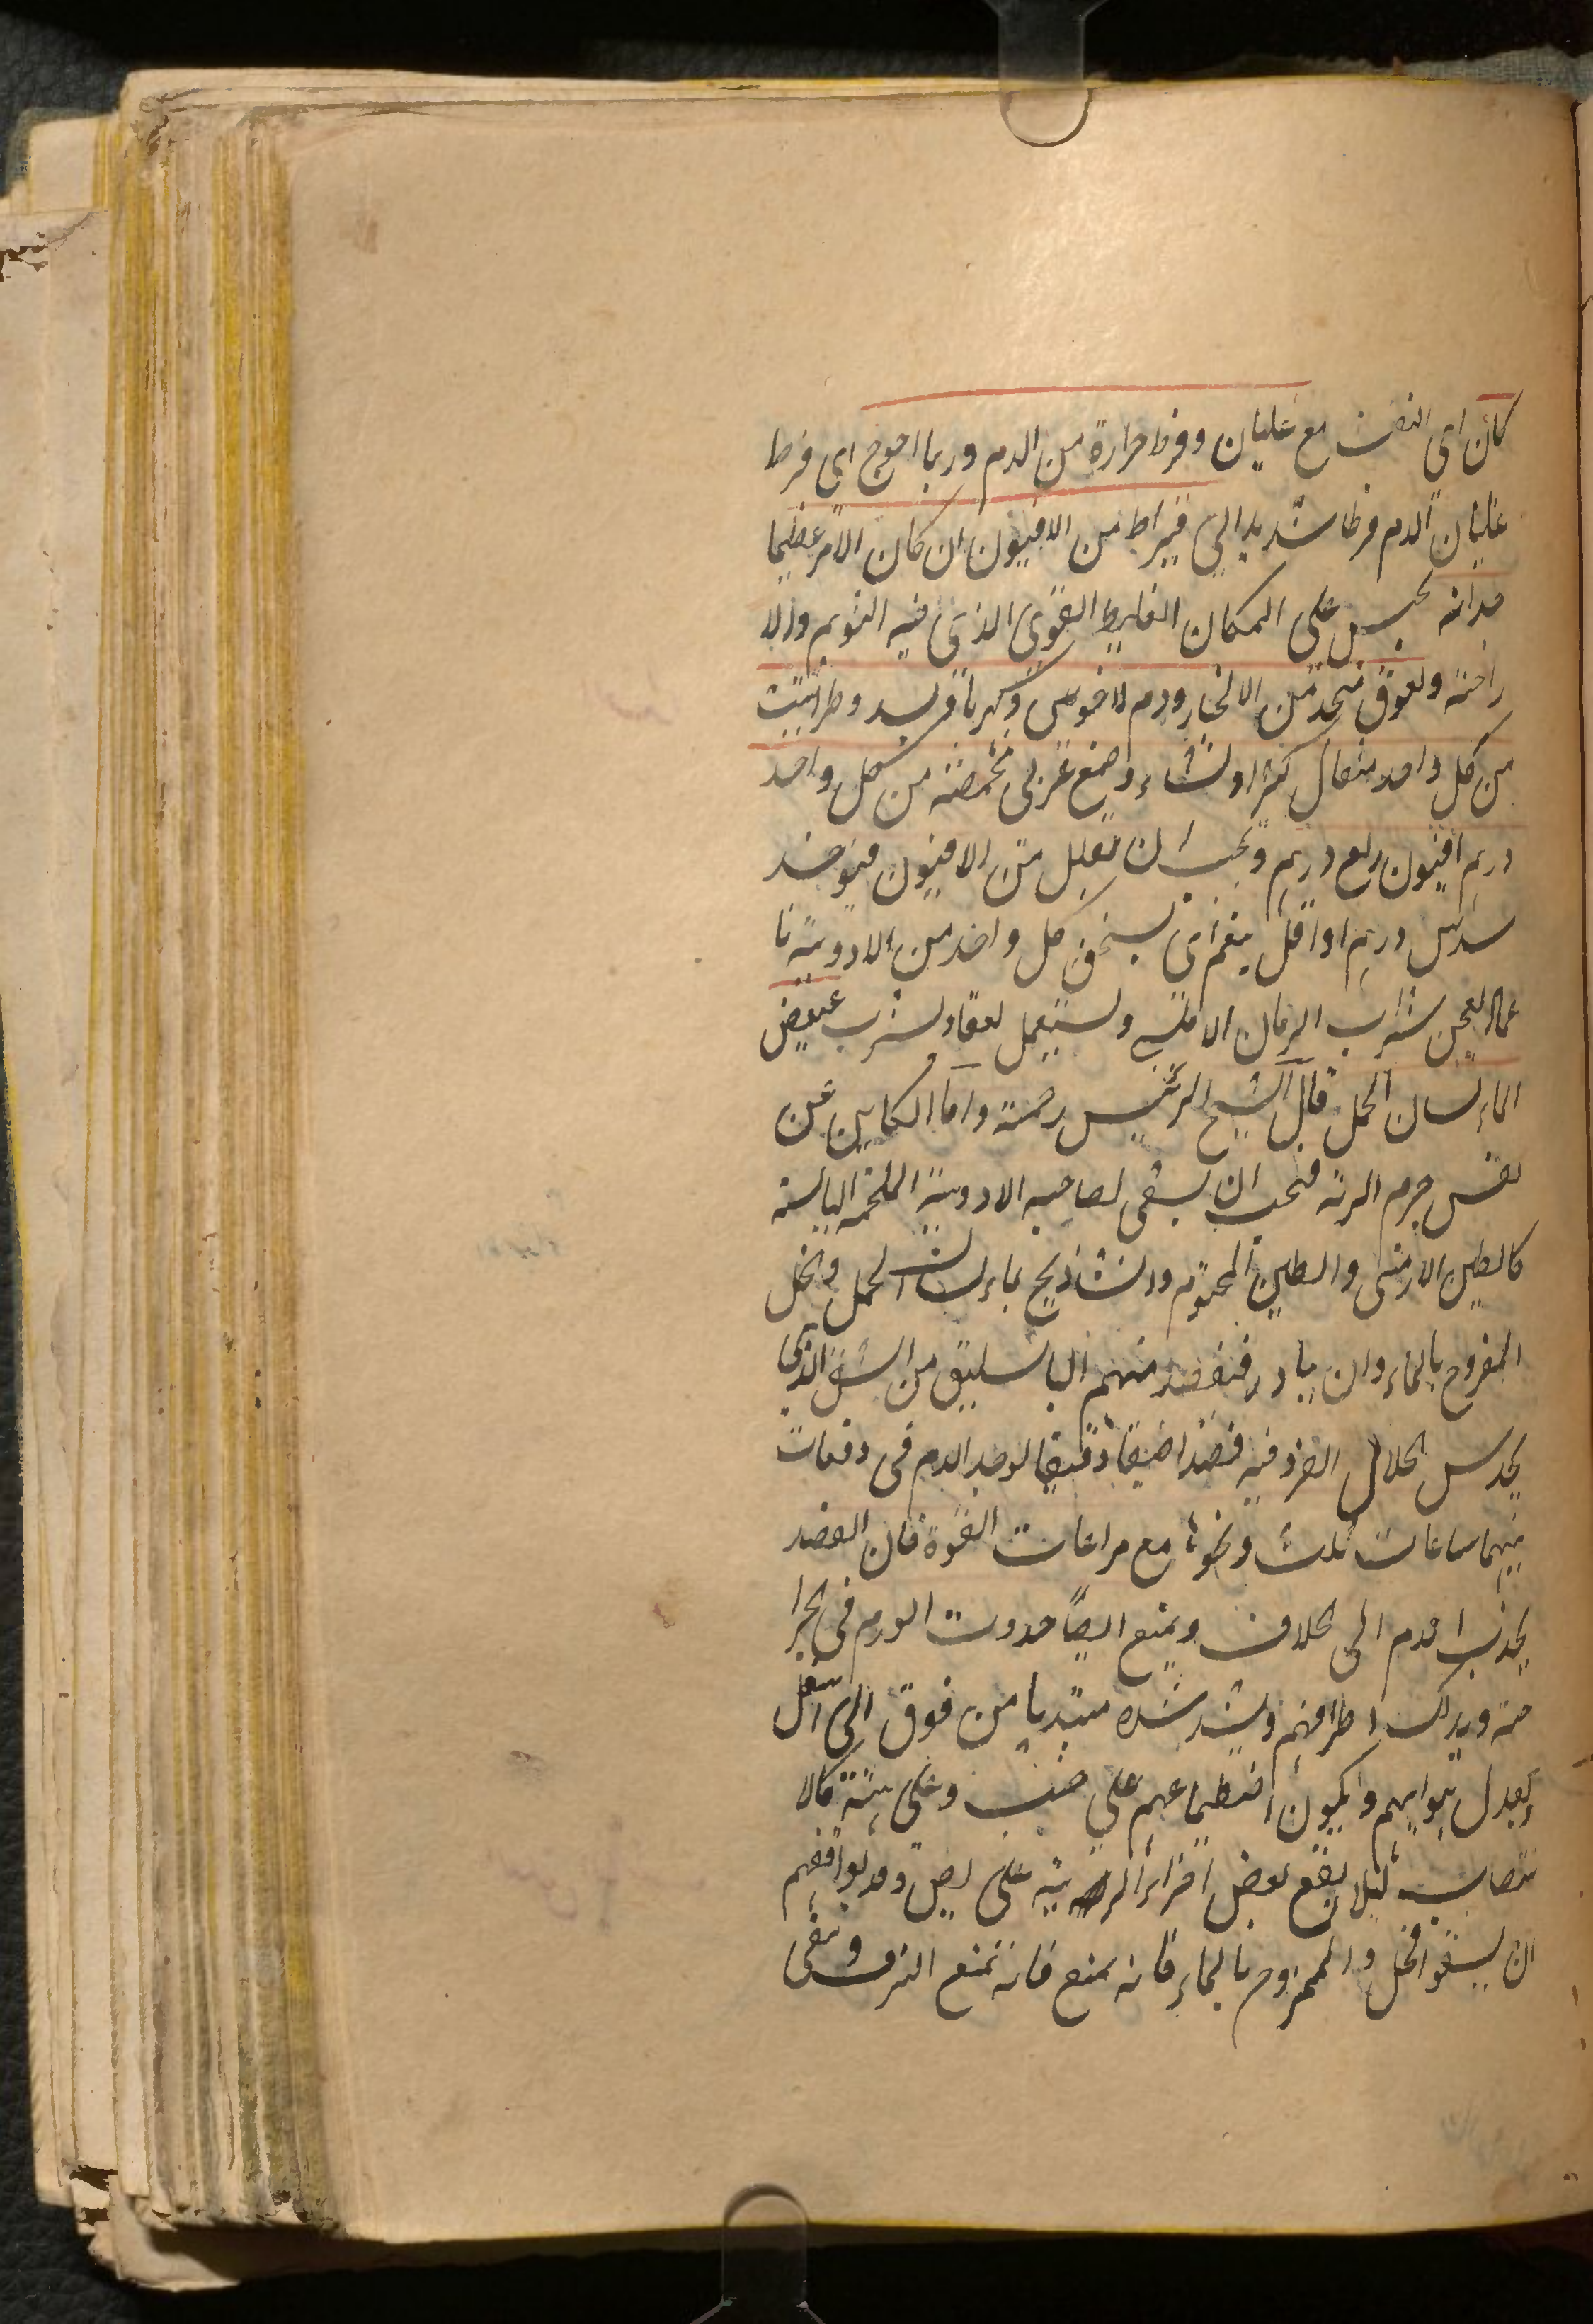 كان اى النفث مع غليان وفرط حرارة من الدم وربما احوج اى فرط
غليان الدم فرطا شديدا الى قيراط من الافيون ان كان الامر عظيما
جدا انه يحبس على المكان الغليظ القوى الذى فيه التنويم والا
راحته ولعوق متخذ من الانجبار ودم الاخوين وكهربا وبسد وطراثيث
من كل واحد مثقال كثيرا ونشاء وصمغ عربى محمصة من كل واحد
درهم افيون ربع درهم ويجب ان يقلل من الافيون فيؤخذ
سدس درهم او اقل ينعم اى يسحق كل واحد من الادوية نا
عما ويعجن بشراب الرمان الاملسى ويستعمل لعقا ويشرب عقيبه
الماء لسان الحمل قال الشيخ الرئيس رحمه واما الكاين عن
نفس جرم الرئة فيجب ان يسقى لصاحبه الادوية الملحمة اليابسة
كالطين الارمنى والطين المختوم والشاذنج بماء لسان الحمل والخل
الممزوج بالماء وان يبادر فيفصد منهم الباسليق من الشق الذى
يحدس انحلال الفرد فيه فصدا ضيقا دقيقا ليوخذ الدم فى دفعات
بينهما ساعات ثلث ونحوها مع مراعات القوة فان الفصد
يجذب الدم الى الخلاف ويمنع ايضا حدوث الورم فى الجرا
حة ويدلك اطرافهم ويشد شده مبتديا من فوق الى اسفل
ويعدل هوايهم ويكون اضطجاعهم على جنب وعلى هيئة كالا
نتصاب لئلا يقع بعض اجزاء الرئة على بعض وقد يوافقهم
ان يسقوا الخل والممزوج بالماء فانه يمنع فانه تمنع النزف وينقى